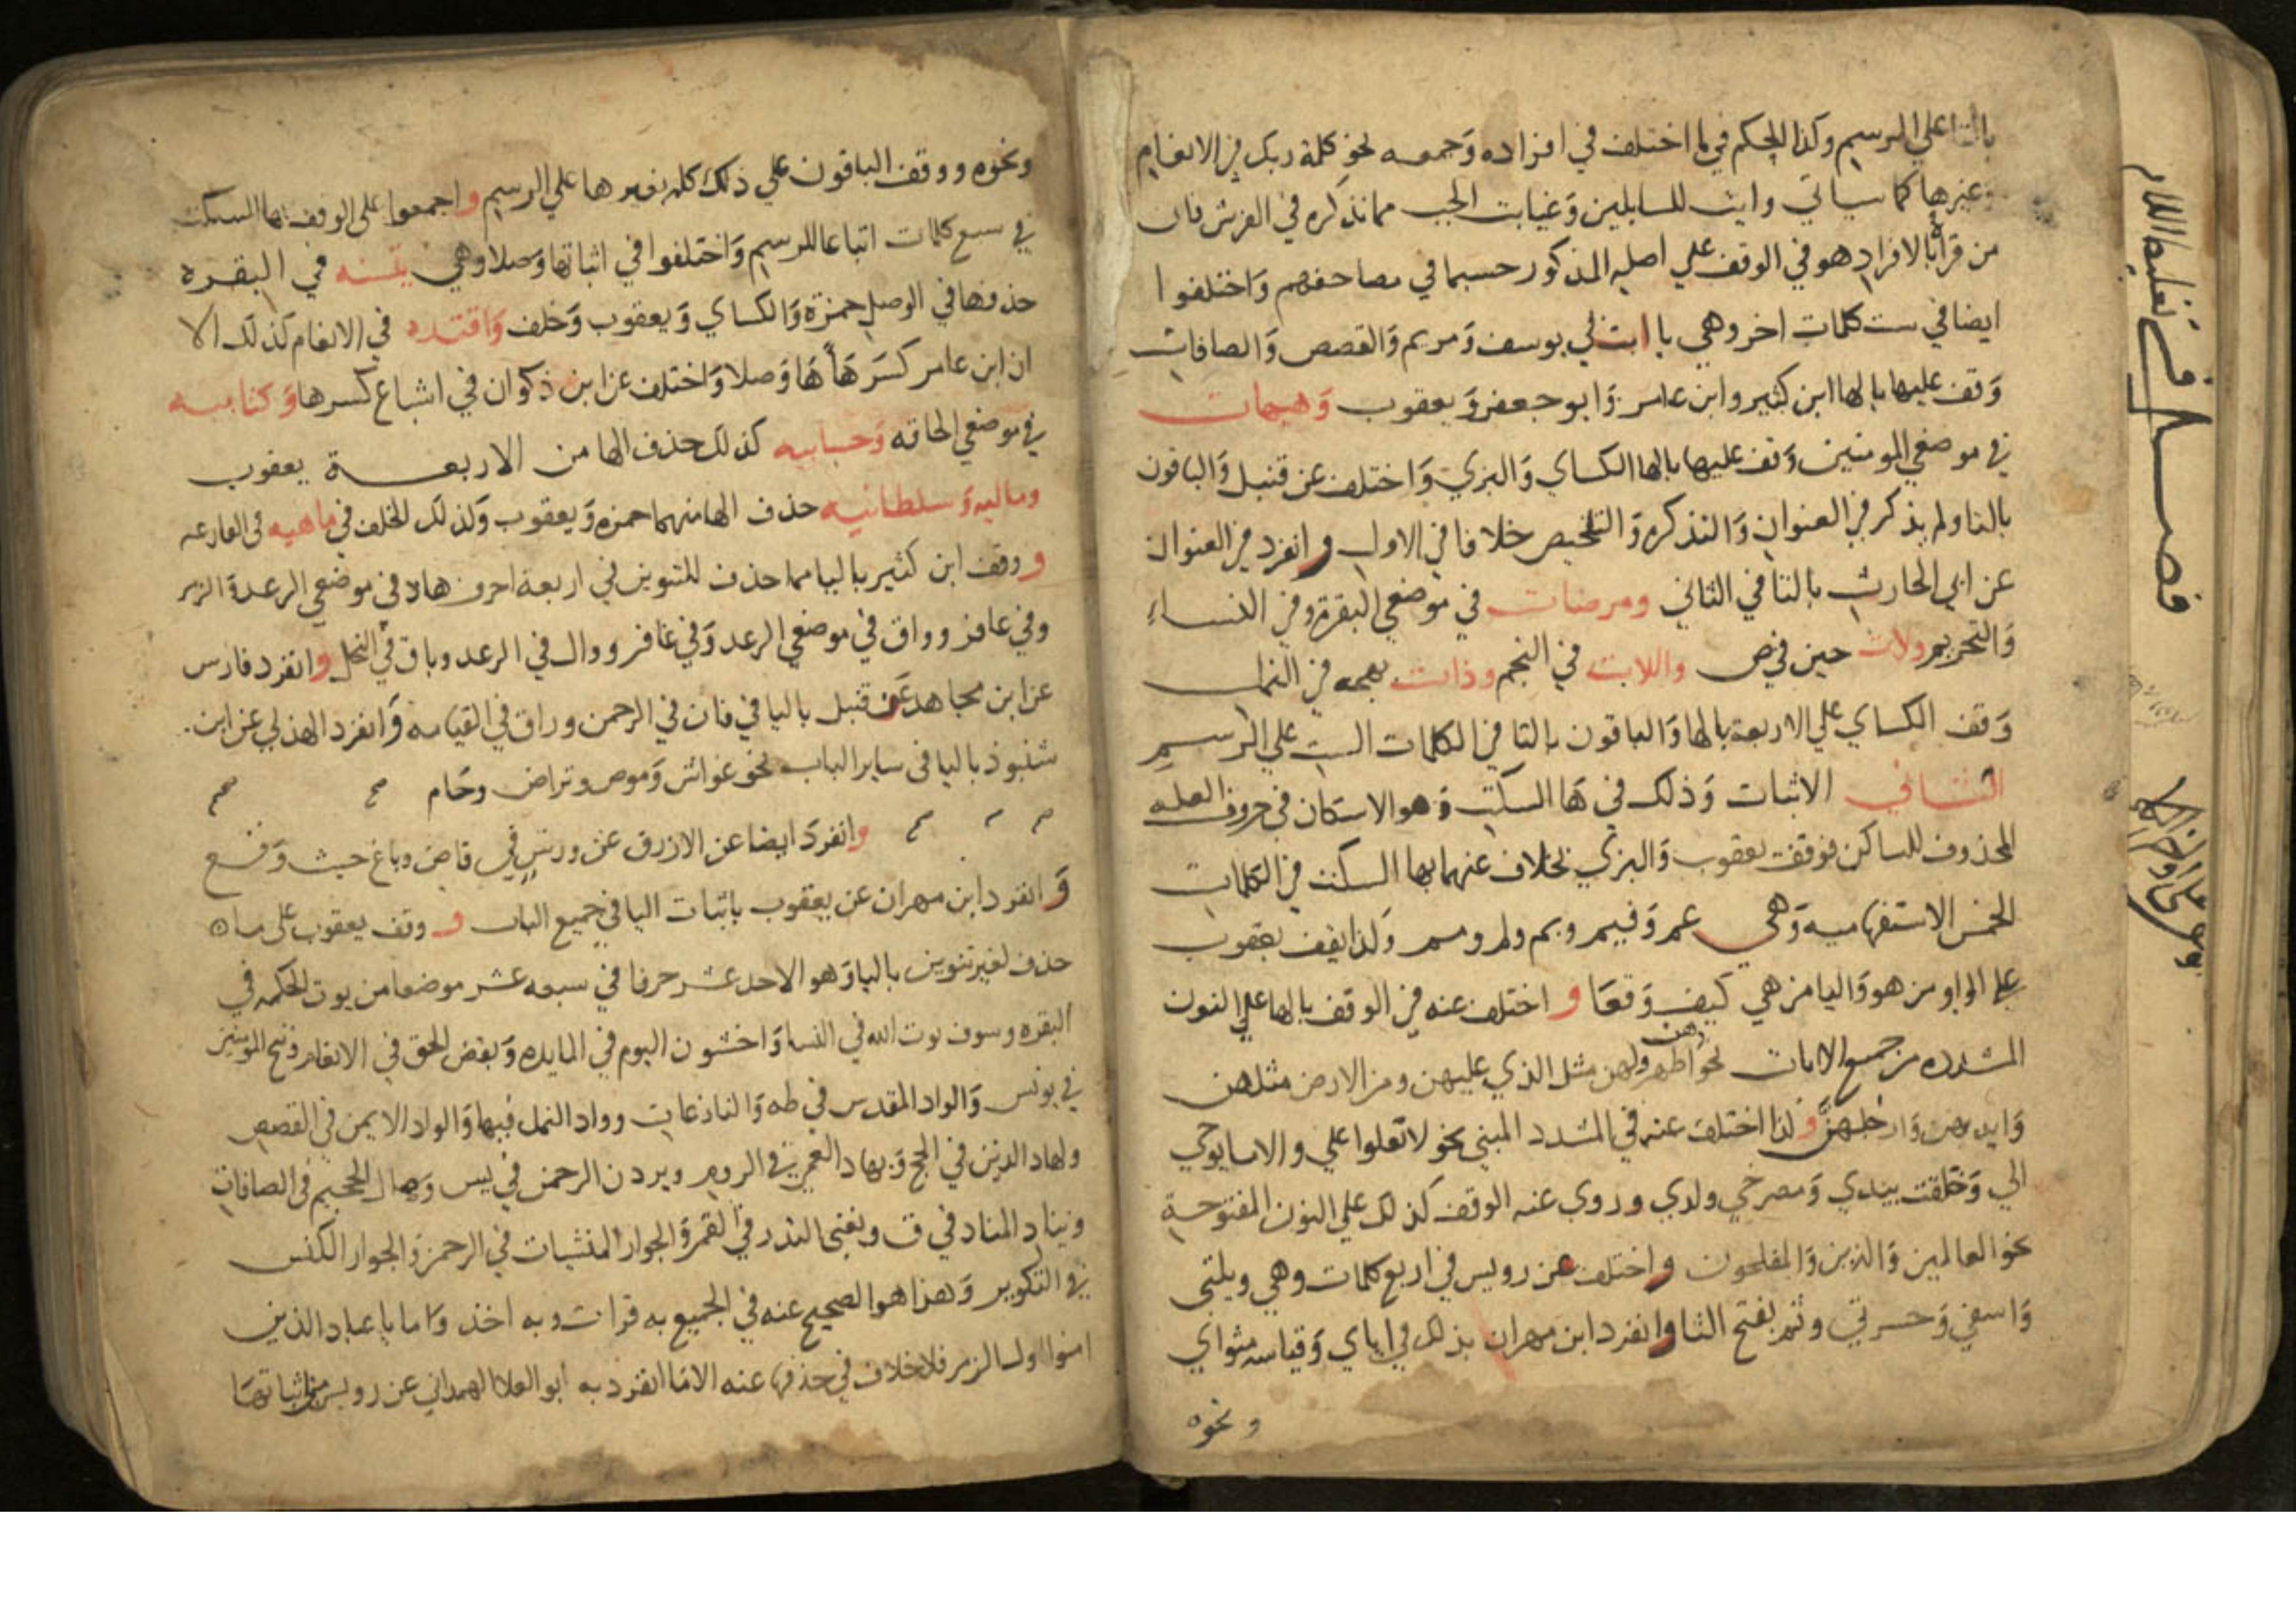 بالتا علي الرسم وكذا الحكم فيما اختلف في افراده وَجمعه نحو كلمة ربك في الانعام
وغيرها كما سياتي وايت للسايلين وَغيابت الجب مما نذكره في الفرش فان
من قراه بالافراد هو في الوقف علي اصله المذكور حسبما في مصاحفهم وَاختلفوا
ايضا في ست كلمات اخر وهي يا ابت في يوسف وَمريم وَالقصص وَالصافات
وَقف عليها بالها ابن كثير وابن عامر وَابو جعفر وَيعقوب وَهيهات
في موضعي المومنين وَقف عليها بالها الكساي وَالبزي وَاختلف عن قنبل وَالباقون
بالتا ولم يذكر في العنوان وَالتذكره وَالتلخيص خلافا في الاول وانفرد في العنوان
عن ابي الحارث بالتا في الثاني ومرضات في موضعي البقرة وفي النساء
وَالتحريم ولات حين في ص واللات في النجم وذات بهجه في النمل
وَقف الكساي علي الاربعة بالها وَالباقون بالتا في الكلمات الست علي الرسم
الثاني الاثبات وَذلك في هَا السكت وَهو الاسكان في حروف العله
المحذوف للساكن فوقف يعقوب وَالبزي بخلاف عنهما بها السكت في الكلمات
الخمس الاستفهاميه وَهي عم وَفيم وبم ولم ومم وَكذا يقف يعقوب
علي الواو من هو وَاليا من هي كيف وَقعَا واختلف عنه في الوقف بالها علي النون
المشدده من جميع الاناث نحو هن اطهر ولهن مثل الذي عليهن ومن الارض مثلهن
وَايديهن وَارجلهنَّ وكذا اختلف عنه في المشدد المبني نحو لا تعلوا علي والا ما يوحي
الي وَخلقت بيدي وَمصرخي ولدي وروي عنه الوقف كذلك علي النون المفتوحة
نحو العالمين وَالذين وَالمفلحون واختلف عن رويس في اربع كلمات وهي ويلتي
وَاسفي وَحسرتي وثم بفتح الثا وانفرد ابن مهران بذلك في اياي وَقياسه مثواي
ونحوه
فصل في تغليظ اللام
ونحوه ووقف الباقون علي ذلك كله بغير ها علي الرسم واجمعوا علي الوقف بها السكت
في سبع كلمات اتباعا للرسم وَاختلفوا في اثباتها وَصلا وهي يتسنه في البقره
حذفها في الوصل حمزة وَالكساي وَيعقوب وَخلف وَاقتده في الانعام كذلك الا
ان ابن عامر كسَر هَاءهَا وَصلا وَاختلف عن ابن ذكوان في اشباع كسرها وَكتابيه
في موضعي الحاقه وَحسابيه كذلك حذف الها من الاربعة يعقوب
وماليه وَسلطانيه حذف الها منهما حمزه وَيعقوب وَكذلك الخلف في ماهيه في القارعه
ووقف ابن كثير باليا مما حذف للتنوين في اربعة احرف هاد في موضعي الرعد وَالزمر
وفي غافر وواق في موضعي الرعد وَفي غافر ووال في الرعد وباق في النحل وانفرد فارس
عن ابن مجاهد عَن قنبل باليا في فان في الرحمن وراق في القيامه وَانفرد الهذلي عن ابن
شنبوذ باليا في ساير الباب نحو غواش وَموص وتراض وحَام
وانفرد ايضا عن الازرق عن ورش في قاض وباغ حيث وَقع
وَانفرد ابن مهران عن يعقوب باثبات اليا في جميع الباب ووقف يعقوب علي ما
حذف لغير تنوين باليا وَهو الاحد عشر حرفا في سبعه عشر موضعا من يوت الحكمه في
البقره وسوف يوت الله في النسا وَاخشون اليوم في المايده وَيقض الحق في الانعام وننج المومنين
في يونس وَالواد المقدس في طه وَالنازعات وواد النمل فيها وَالواد الايمن في القصص
ولهاد الذين في الحج وَبهاد العمي في الروم ويردن الرحمن في يس وَصال الجحيم في الصافات
ويناد المناد في ق وتغن النذر في القمر وَالجوار المنشيات في الرحمن وَالجوار الكنس
في التكوير وَهذا هو الصحيح عنه في الجميع به قرات وبه اخذ وَاما يا عباد الذين
امنوا اول الزمر فلا خلاف في حذفها عنه الا مَا انفرد به ابو العلا الهمداني عن رويس من اثباتهَا